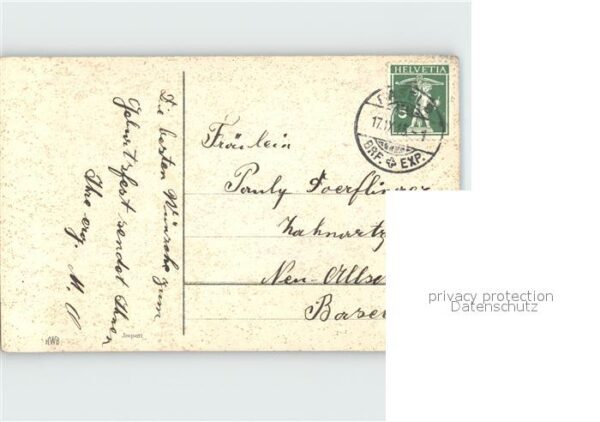 Die besten Wünsche zum
Geburtsfest sendet Ihnen
Ihre erg. M. P
HWB
HELVETIA
5
17.IX
BRF. EXP.
Fräulein
Pauly Doerflinger
Zahnartz
Neu-Allsc
Basel
privacy protection
Datenschutz